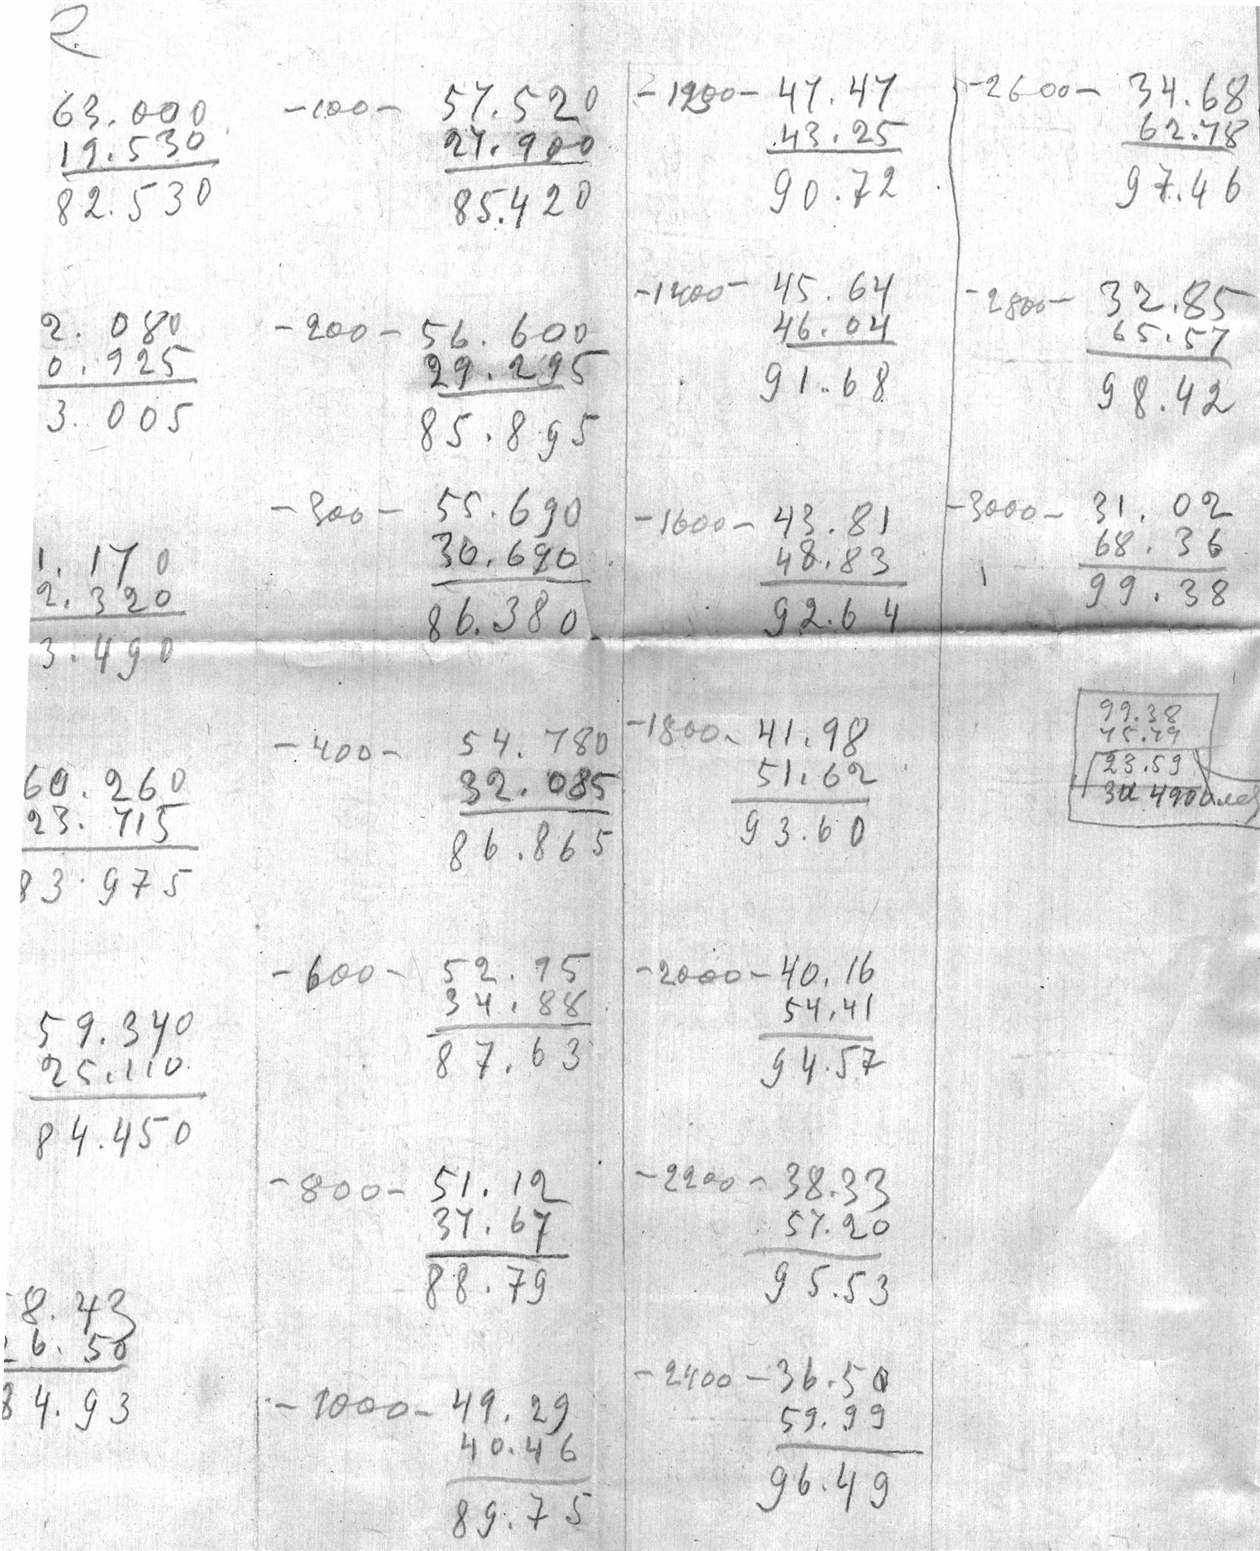 63.000
19.530
82.530
2.080
0.925
3.005
1.170
2.320
3.490
60.260
23.715
83.975
59.340
25.110
84.450
8.43
26.50
84.93
-100- 57.520
27.900
85.420
-200- 56.600
29.295
85.895
-300- 55.690
30.690
86.380
-400- 54.780
32.085
86.865
-600- 52.95
34.88
87.63
-800- 51.12
37.67
88.79
-1000- 49.29
40.46
89.75
-1200- 47.47
43.25
90.72
-1400- 45.64
46.04
91.68
-1600- 43.81
48.83
92.64
-1800- 41.98
51.62
93.60
-2000- 40.16
54.41
94.57
-2200- 38.33
57.20
95.53
-2400- 36.50
59.99
96.49
-2600- 34.68
62.78
97.46
-2800- 32.85
65.57
98.42
-3000- 31.02
68.36
99.38
99.38
75.79
23.59